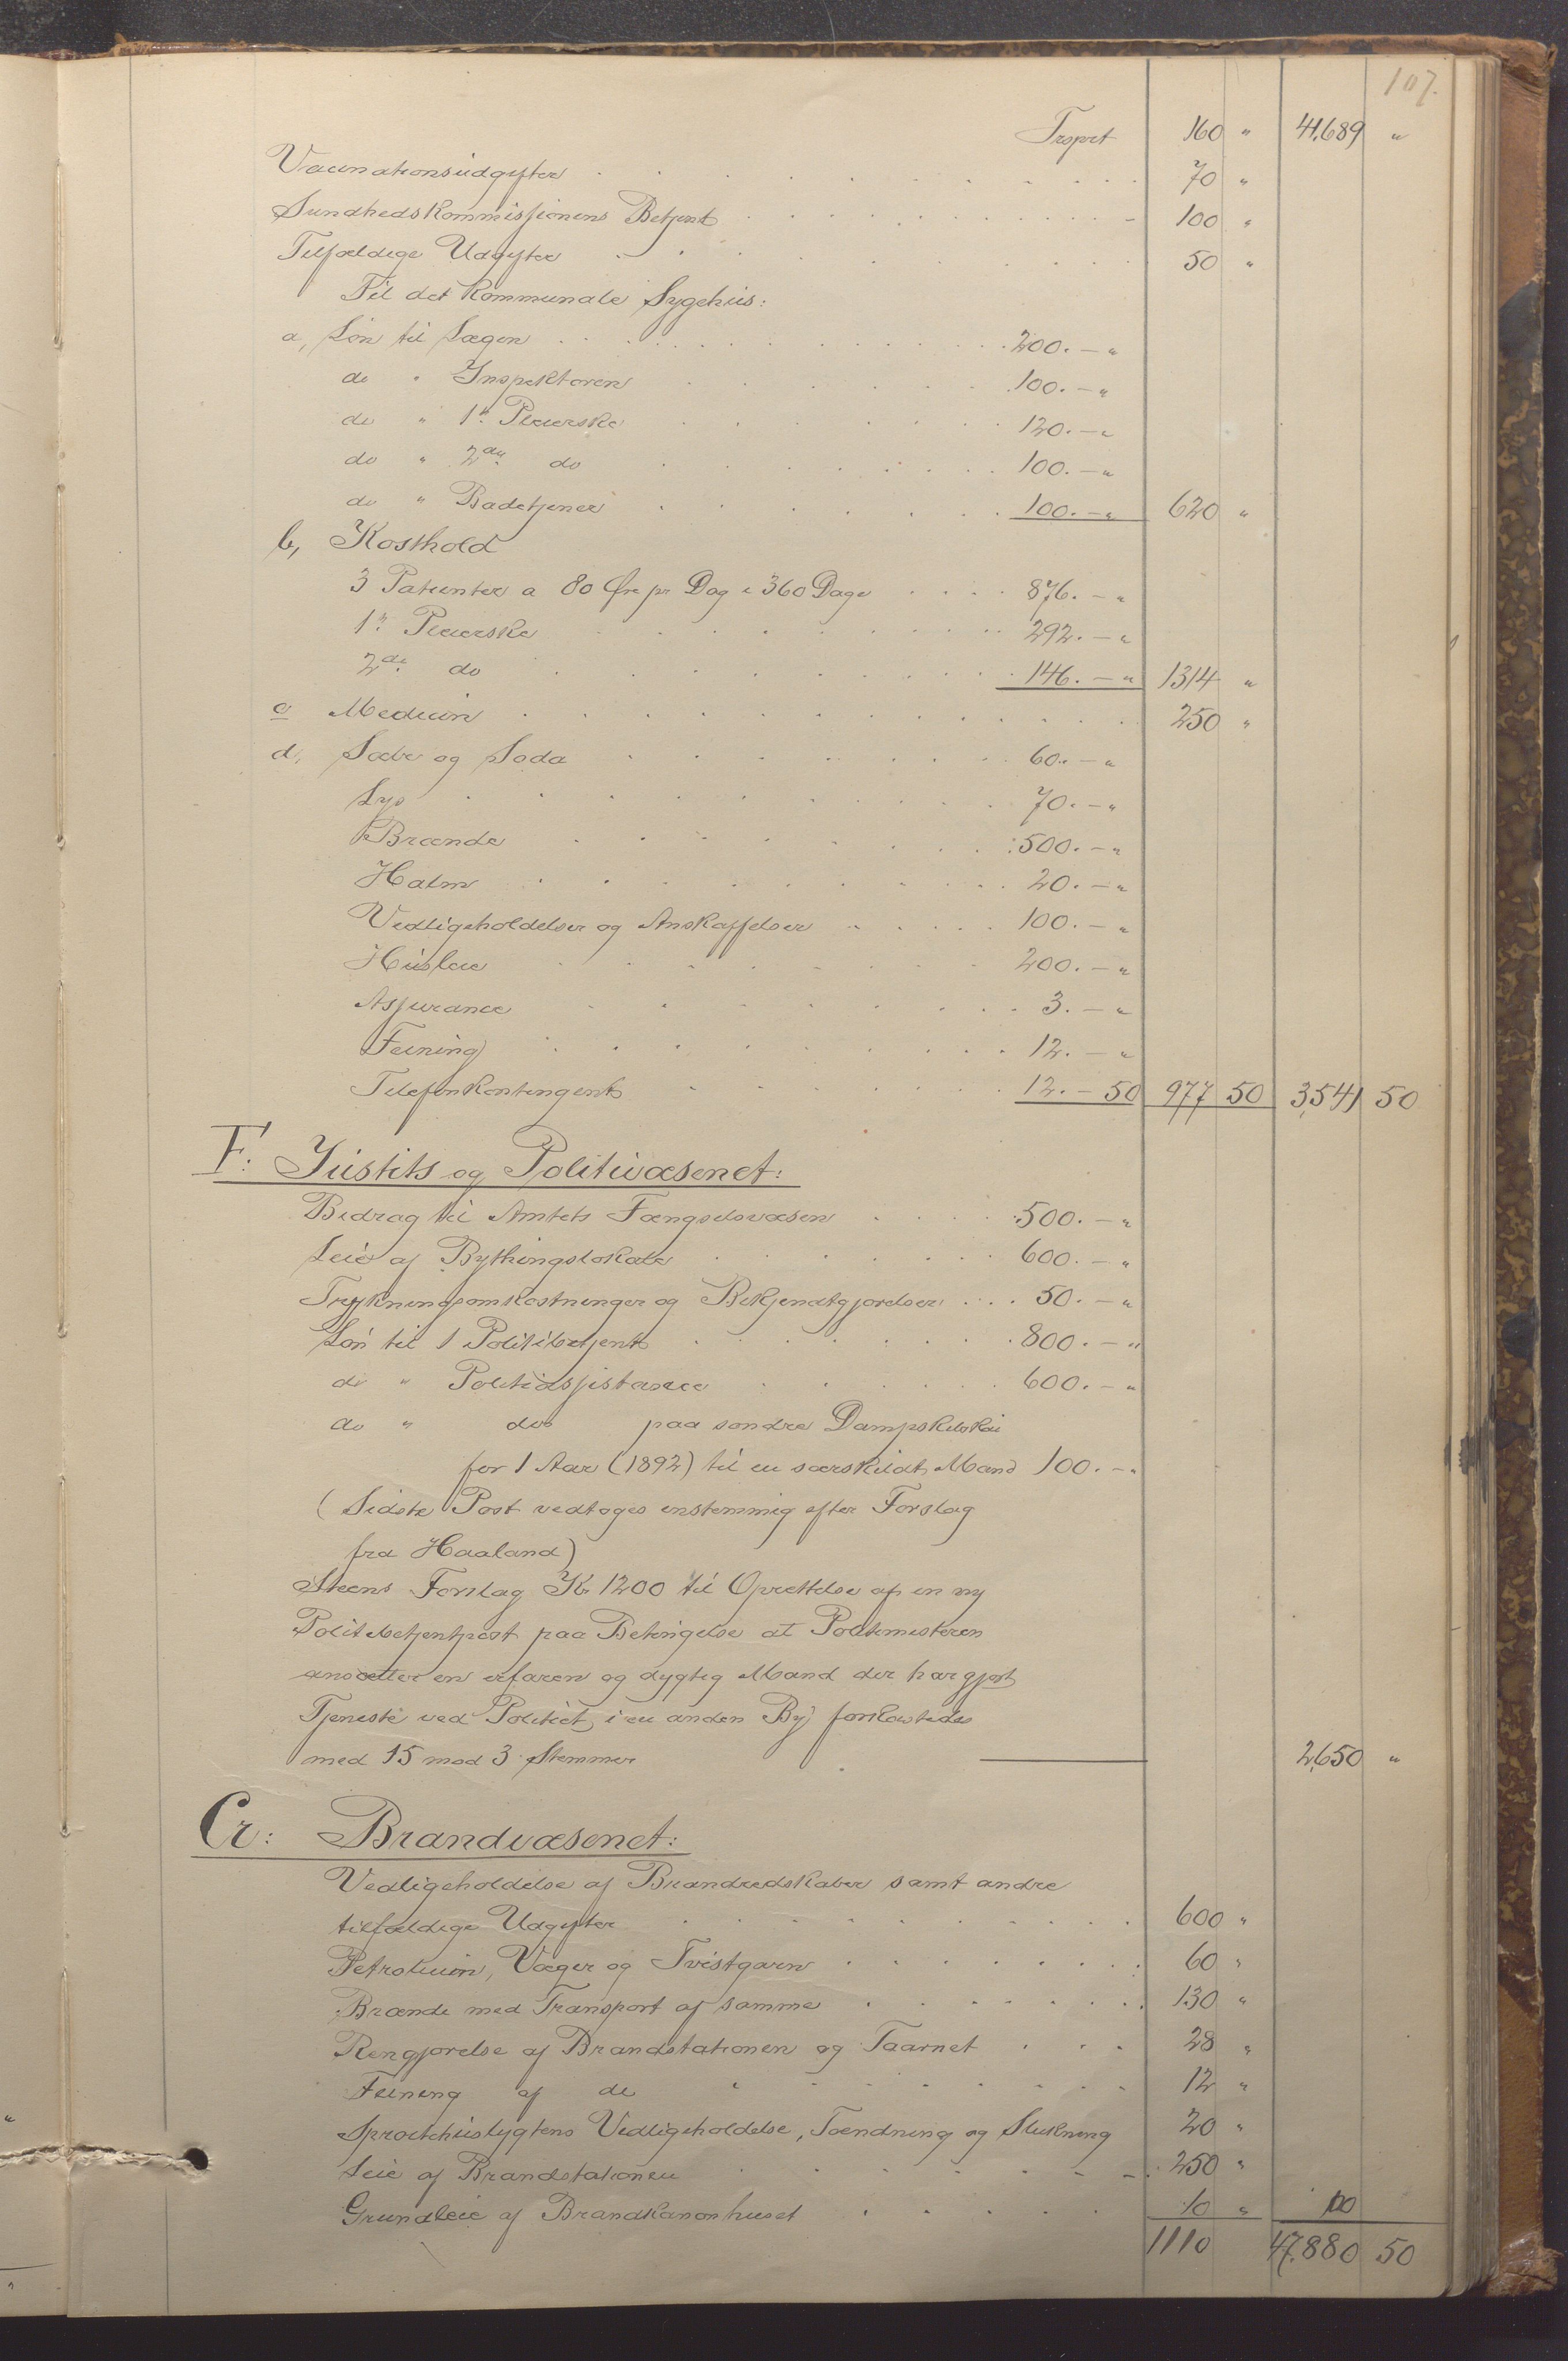 107.
Trsprt 160 " 41.689 "
Vaccinationsudgifter . . . 70 "
Sundhedskommissionens Betjent . . . 100 "
Tilfældige Udgifter . . . 50 "
Til det kommunale Sygehus:
a, Løn til Lægen . . . 200. - "
do " Inspektøren . . . 100. - "
do " 1ste Pleierske . . . 120. - "
do " 2den do . . . 100. - "
do " Badetjener . . . 100. - " 620 "
b, Kosthold
3 Patienter a 80 Øre pr Dag i 360 Dage . . . 876. - "
1ste Pleierske . . . 292. - "
2den do . . . 146. - " 1314 "
c Medicin . . . 250 "
d, Sæbe og Soda . . . 60. - "
Lys . . . 70. - "
Brænde . . . 500. - "
Halm . . . 20. - "
Vedligeholdelser og Anskaffelser . . . 100. - "
Husleie . . . 200. - "
Assurance . . . 3. - "
Feining . . . 12. - "
Telefonkontingent . . . 12. - 50 977 50 3,541 50
F. Justits og Politivæsenet:
Bidrag til Amtets Fængselsvæsen . . . 500. - "
Leie af Bythingslokale . . . 600. - "
Trykningsomkostninger og Bekjendtgjørelser . . . 50. - "
Løn til 1 Politibetjent . . . 800. - "
do " Politiassistance . . . 600. - "
do " do paa søndre Dampskibskai
for 1 Aar (1892) til en særskildt Mand 100. - "
(Sidste Post vedtoges enstemmig efter Forslag
fra Haaland)
Steens Forslag Kr 1200 til Oprettelse af en ny
Politibetjentpost paa Betingelse at Politimesteren
ansætter en erfaren og dygtig Mand der har gjort
Tjeneste ved Politiet i en anden By forkastedes
med 15 mod 3 Stemmer 2,650 "
G: Brandvæsenet:
Vedligeholdelse af Brandredskaber samt andre
tilfældige Udgifter . . . 600 "
Petroleum, Væger og Tvistgarn . . . 60 "
Brænde med Transport af samme . . . 130 "
Rengjørelse af Brandstationen og Taarnet . . . 28 "
Feining af do . . . 12 "
Sprøitehuslygtens Vedligeholdelse, Tændning og Slukning 20 "
Leie af Brandstationen . . . 250 "
Grundleie af Brandkanonhuset . . . 10 "
1110 47.880 50